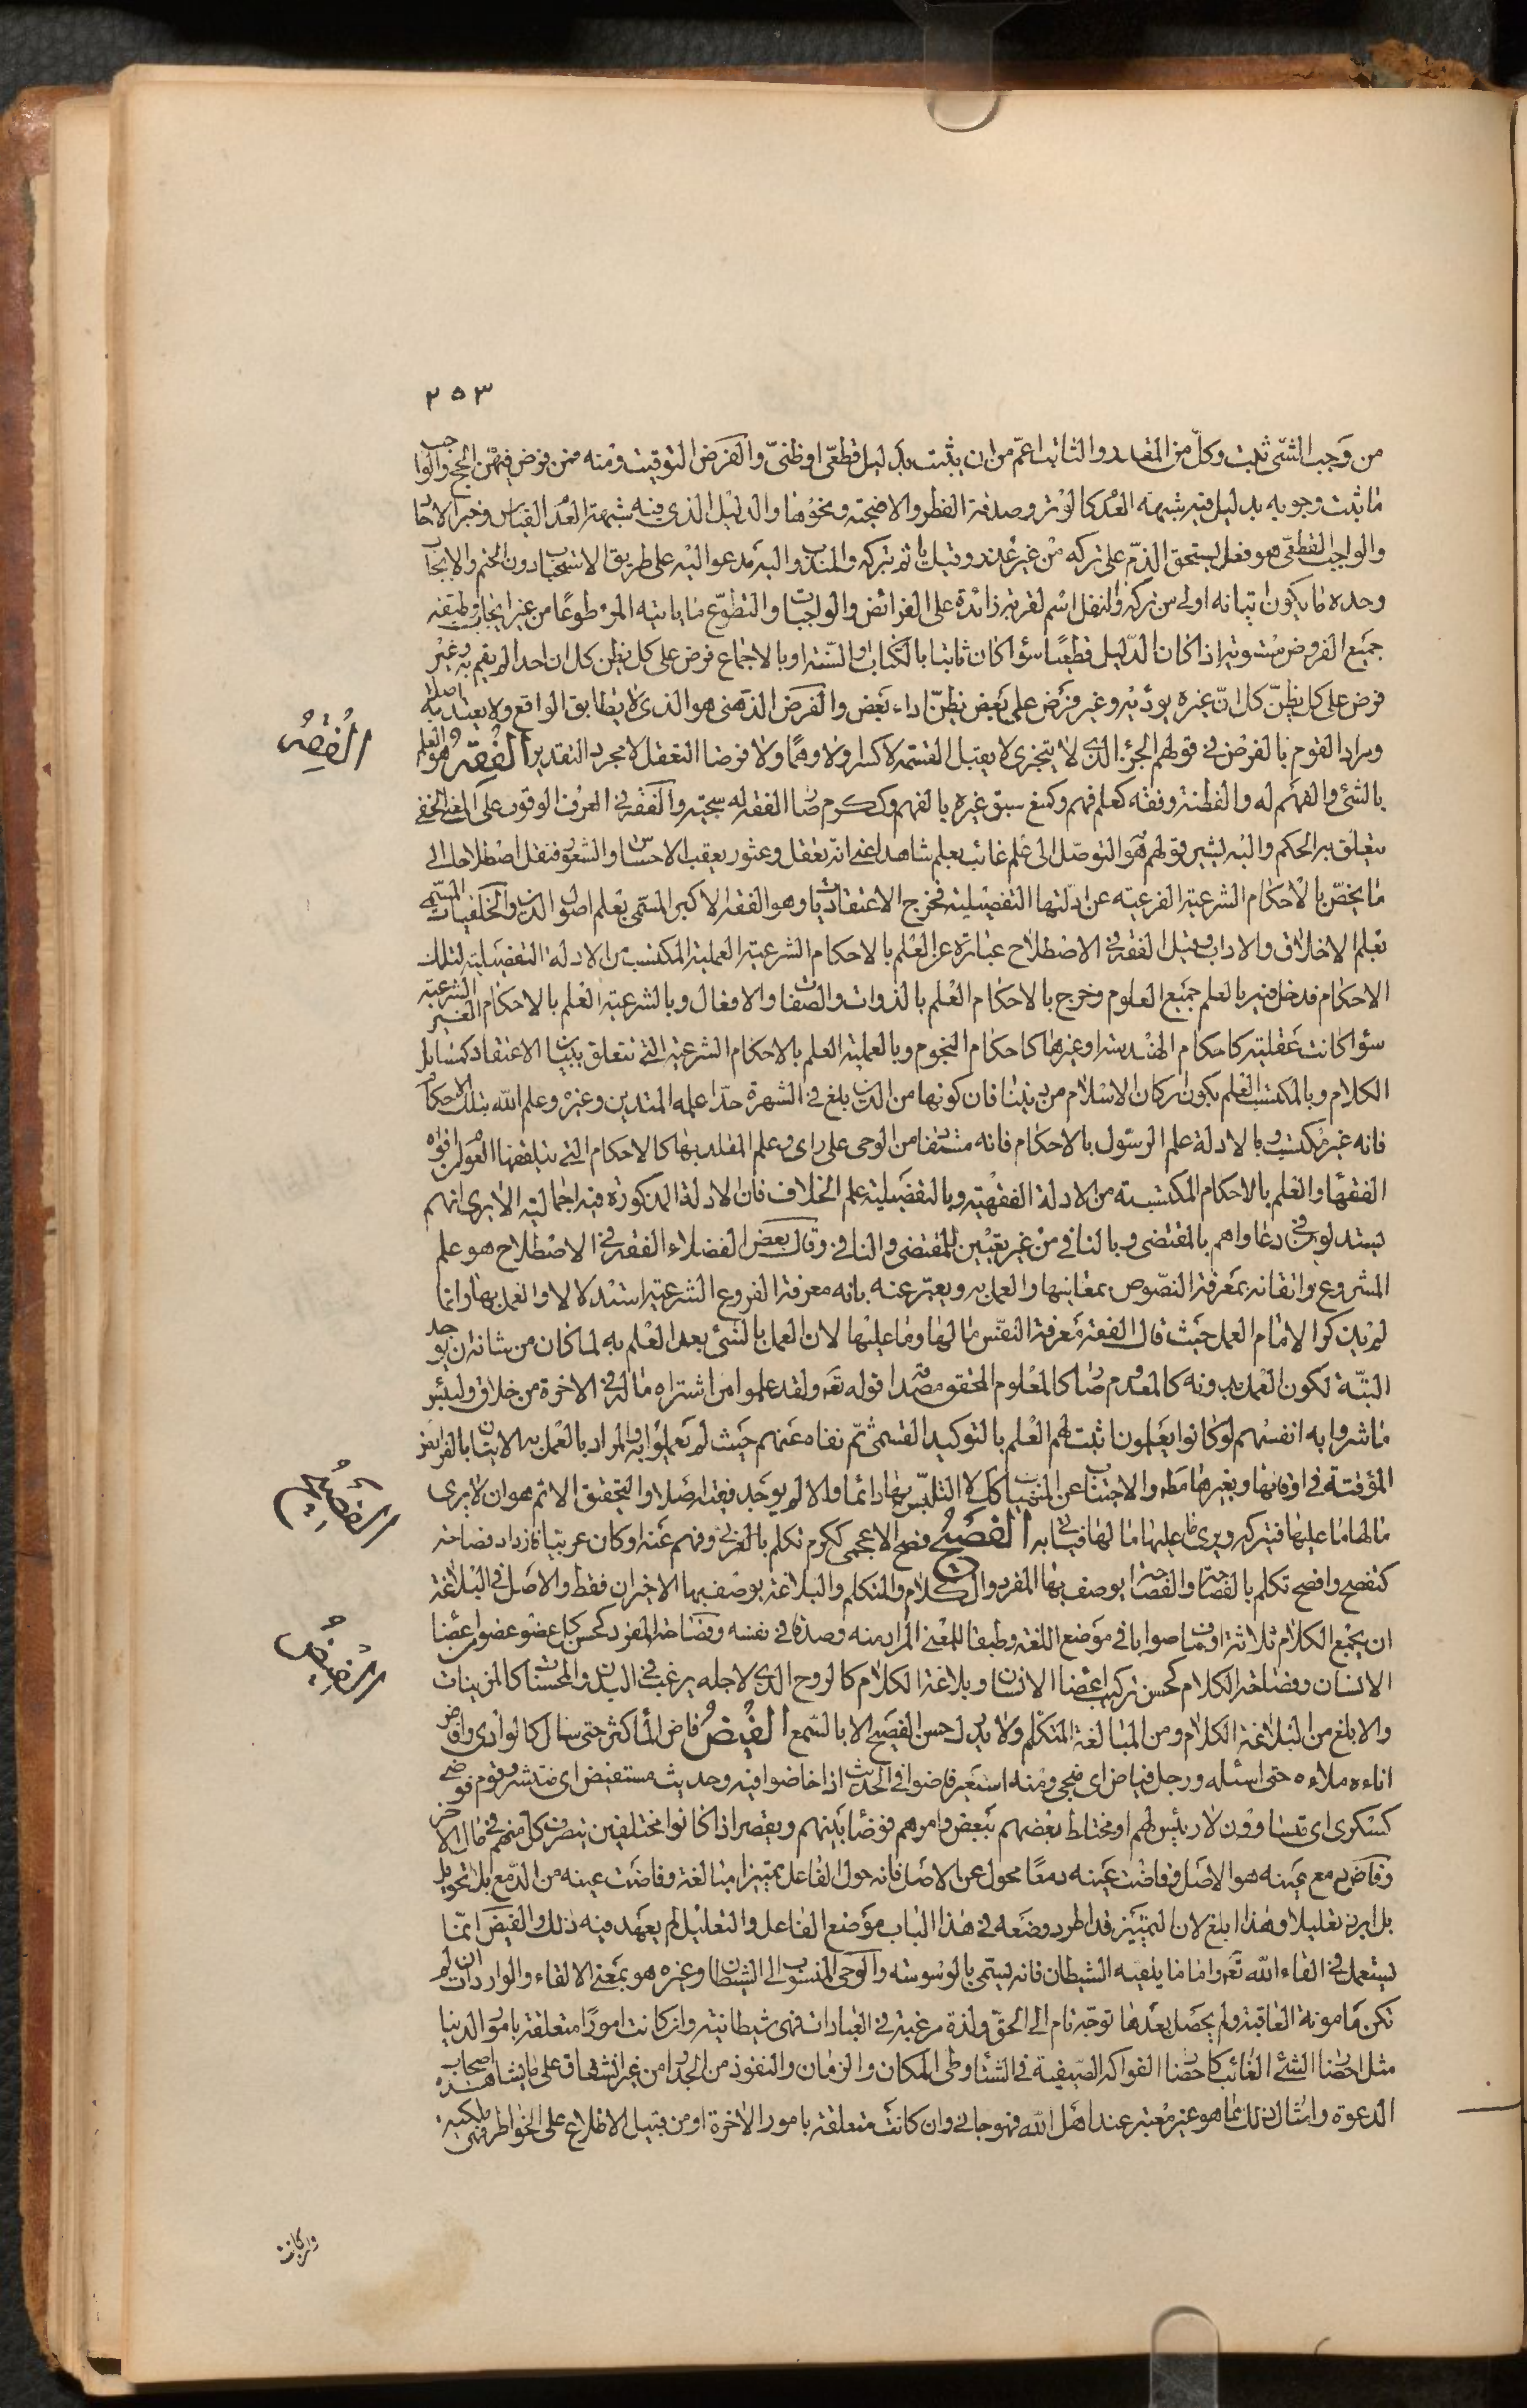 ٢٥٣
من وجب الشئ ثبت وكل من المقدر والثابت اعم من ان يثبت بدليل قطعى او ظنى والفرض التوقيت ومنه فمن فرض فيهن الحج والواجب
ما ثبت وجوبه بدليل فيه شبهة العدم كالوتر وصدقة الفطر والاضحية ونحوها والدليل الذى فيه شبهة العدم القياس وخبر الاحاد
والواجب القطعى هو فعل يستحق الذم على تركه من غير عذر وقيل ياثم بتركه والمندوب اليه مدعو اليه على طريق الاستحباب دون الحتم والايجاب
وحده ما يكون اتيانه اولى من تركه والنفل اسم لقربة زائدة على الفرائض والواجبات والتطوع ما ياتيه المرء طوعا من غير ايجاب
جميع الفروض مستوية اذا كان الدليل قطعيا سواء كان ثابتا بالكتاب او السنة او بالاجماع فرض على كل يظن كل ان احدا لم يقم به وغير
فرض على كل يظن كل ان غيره يوديه وغير فرض على بعض يظن اداء بعض والفرض الذهنى هو الذى لا يطابق الواقع ولا يعتد به اصلا
ومراد القوم بالفرض فى قولهم الجزء الذى لا يتجزى لا يقبل القسمة لا كسرا ولا وهما ولا فرضا التعقل لا مجرد التقدير الفقه هو العلم
بالشئ والفهم له والفطنة وفقه كعلم فهم وكمنع سبق غيره بالفهم وككرم صار الفقه له سجية والفقه فى العرف الوقوف على المعنى الخفى
يتعلق به الحكم واليه يشير قولهم هو التوصل الى علم غائب بعلم شاهد اعنى انه تعقل وعثور يعقب الاحساس والشعور فنقل اصطلاحا الى
ما يخص بالاحكام الشرعية الفرعية عن ادلتها التفصيلية فخرج الاعتقاديات وهو الفقه الاكبر المسمى بعلم اصول الدين والخلقيات المسمى
بعلم الاخلاق والاداب وقيل الفقه فى الاصطلاح عبارة عن العلم بالاحكام الشرعية العملية المكتسب من الادلة التفصيلية لتلك
الاحكام فدخل فيه بالعلم جميع العلوم وخرج بالاحكام العلم بالذوات والصفات والافعال وبالشرعية العلم بالاحكام الغير الشرعية
سواء كانت عقلية كاحكام الهندسة او غيرها كاحكام النجوم وبالعملية العلم بالاحكام الشرعية التى تتعلق ببيان الاعتقاد كمسائل
الكلام وبالمكتسب العلم بكون اركان الاسلام من ديننا فان كونها من الدين بلغ فى الشهرة حدا علمه المتدين وغيره وعلم الله بتلك الاحكام
فانه غير مكتسب وبالادلة علم الرسول بالاحكام فانه مستفاد من الوحى على راى وعلم المقلد بها كالاحكام التى يتلقفها العوام من افواه
الفقهاء والعلم بالاحكام المكتسبة من الادلة الفقهية وبالتفصيلية علم الخلاف فان الادلة المذكورة فيه اجمالية الا يرى انهم
يستدلون فى دعاواهم بالمقتضى وبالنافى من غير تعيين للمقتضى والنافى وقال بعض الفضلاء الفقه فى الاصطلاح هو علم
المشروع واتقانه بمعرفة النصوص بمعانيها والعمل به ويعبر عنه بانه معرفة الفروع الشرعية استدلالا والعمل بها وانما
لم يذكر الامام العمل حيث قال الفقه معرفة النفس ما لها وما عليها لان العمل بالشئ بعد العلم به لما كان من شانه ان يوجد
البتة لكون العلم بدونه كالمعدوم صار كالمعلوم المحقق مصداقه قوله تع ولقد علموا لمن اشتراه ما له فى الاخرة من خلاق ولبئس
ما شروا به انفسهم لو كانوا يعلمون اثبت لهم العلم بالتوكيد القسمى ثم نفاه عنهم حيث لم يعملوا به والمراد بالعمل به الاتيان بالفرائض
المؤقتة فى اوقاتها وبغيرها مط والاجتناب عن المنهيات كل لا التلبس بها دائما والا لم يوجد فقيه اصلا والتحقيق الاتم هو ان لا يرى
ما لها ما عليها فيتركه ويرى ما عليها ما لها فياتى به الفصيح فصح الاعجمى ككرم تكلم بالعربى وفهم عنه او كان عربيا فازداد فصاحة
كتفصح وافصح تكلم بالفصاحة والفصاحة يوصف بها المفرد والكلام والمتكلم والبلاغة يوصف بها الاخيران فقط والاصل فى البلاغة
ان يجمع الكلام ثلاثة اوصاف صوابا فى موضع اللغة وطبقا للمعنى المراد منه وصدقا فى نفسه وفصاحة المفرد كحسن كل عضو عضو من اعضاء
الانسان وفصاحة الكلام كحسن تركيب اعضاء الانسان وبلاغة الكلام كالروح الذى لاجله يرغب فى البدن والمحسنات كالمزينات
والابلغ من البلاغة الكلام ومن المبالغة المتكلم ولا يدرك حسن الفصيح الا بالسمع الفيض فاض الماء كثر حتى سال كالوادى وافاض
اناءه ملاءه حتى اسئله ورجل فياض اى سخى ومنه استعير فاضوا فى الحديث اذا خاضوا فيه وحديث مستفيض اى منتشر وقوم فوضى
كسكرى اى متساوون لا رئيس لهم او مختلط بعضهم ببعض وامرهم فوضا بينهم ويقصر اذا كانوا مختلفين يتصرف كل منهم فى مال الاخر
وفاض دمع عينه هو الاصل وفاضت عينه دمعا محول عن الاصل فانه حول الفاعل تمييزا مبالغة وفاضت عينه من الدمع بلا تحويل
بل ابرز تعليلا وهذا ابلغ لان التمييز قد اطرد وضعه فى هذا الباب موضع الفاعل والتعليل لم يعهد فيه ذلك والفيض انما
يستعمل فى القاء الله تع واما ما يلقيه الشيطان فانه يسمى بالوسوسة والوحى المنسوب الى الشيطان وغيره هو بمعنى الالقاء والواردات ان لم
تكن مامونة العاقبة ولم يحصل بعدها توجه تام الى الحق ولذة مرغبة فى العبادات فهى شيطانية وان كانت امورا متعلقة بامور الدنيا
مثل احضار الشئ الغائب كاحضار الفواكه الصيفية فى الشتاء وطى المكان والزمان والنفوذ من الجدار من غير انشقاق على ما يشاهده اصحاب
الدعوة وامثال ذلك مما هو غير معتبر عند اهل الله فهو جانى وان كانت متعلقة بامور الاخرة او من قبيل الاطلاع على الخواطر فهى ملكية
الفقه
الفصيح
الفيض
وان كانت